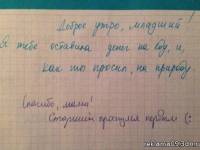 Доброе утро, младший!
Я тебе оставила денег на еду, и,
как ты просил, на природу
Спасибо, мама!
Старший проснулся первым (:
reklama093.com